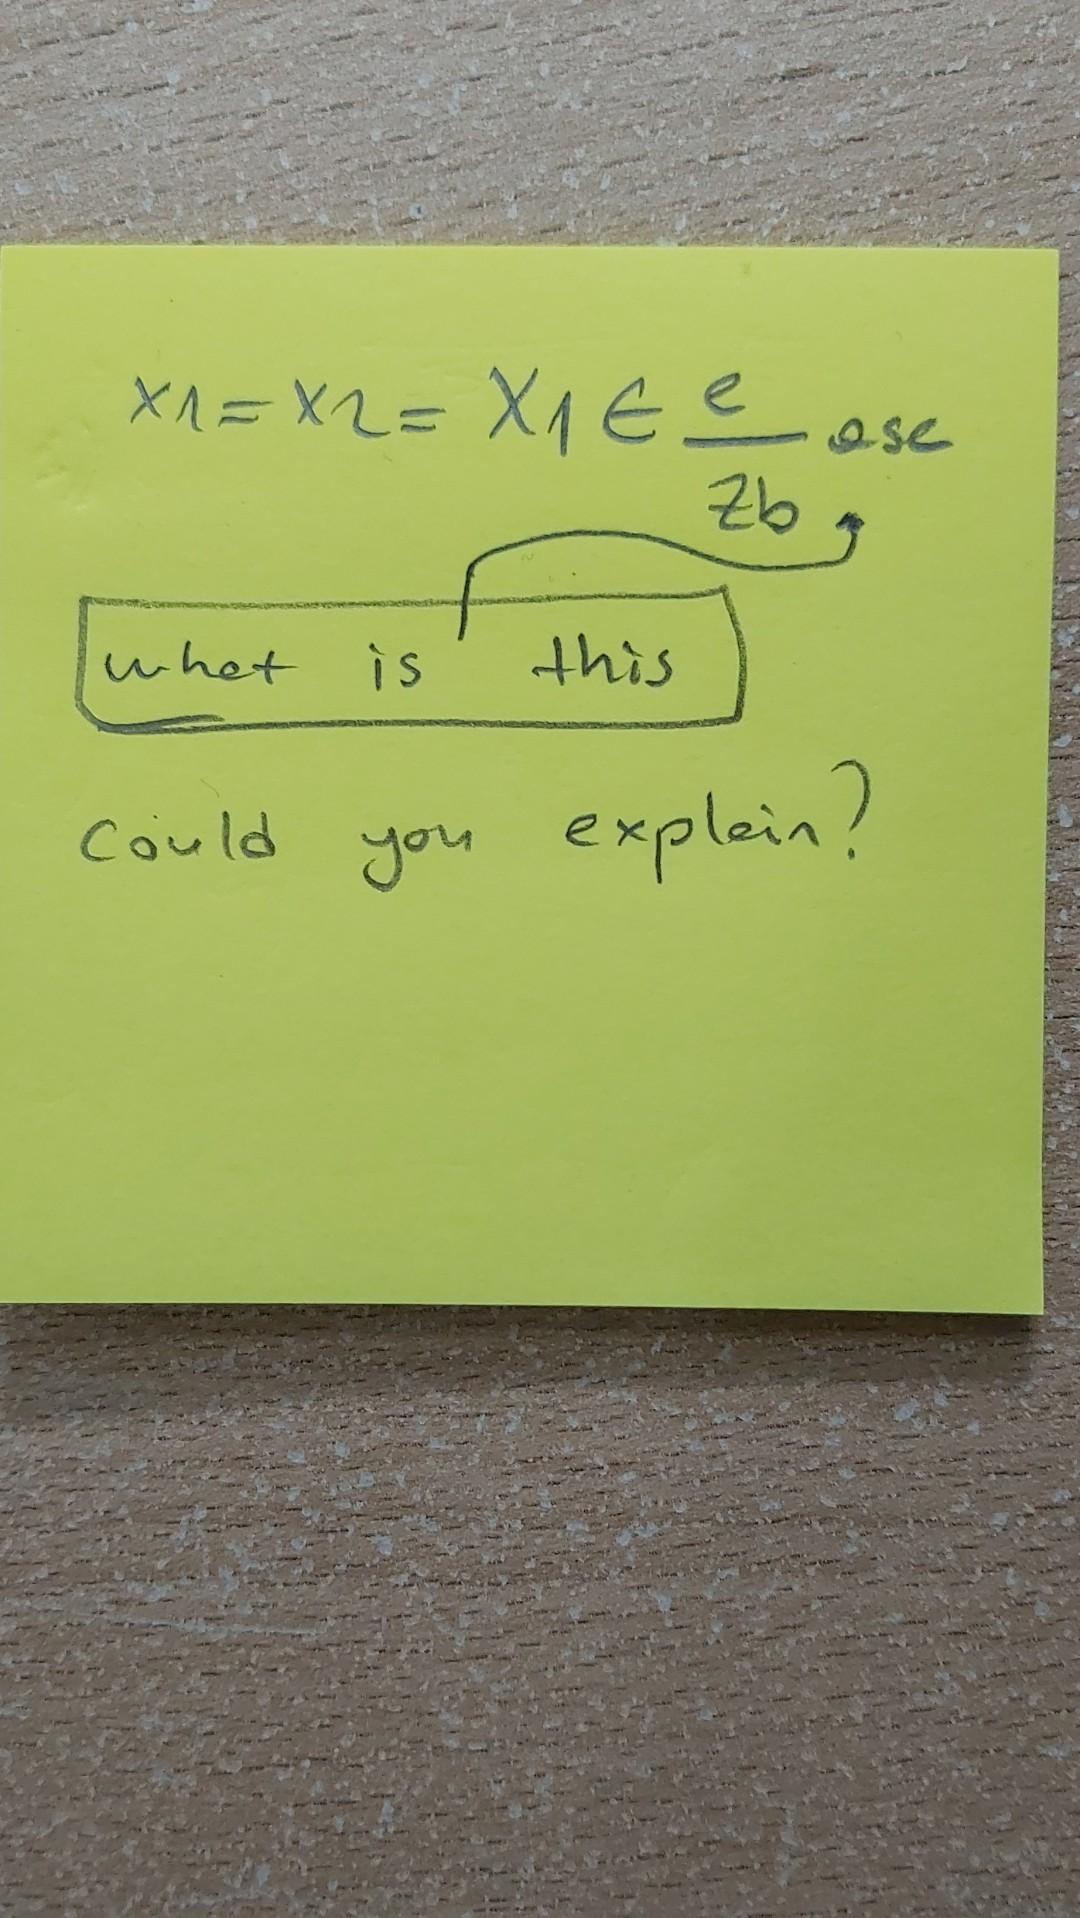 x1=x2= X1 ∈ e
zb ase
what is this
Could you explain?